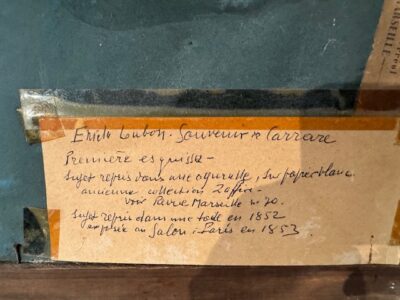 MARSEILLE
Emile Loubon. Souvenir de Carrare
Première esquisse -
Sujet repris dans une aquarelle, sur papier blanc
ancienne collection Zaffin -
voir Revue Marseille n° 70.
Sujet repris dans une toile en 1852
exposée au Salon : Paris en 1853.